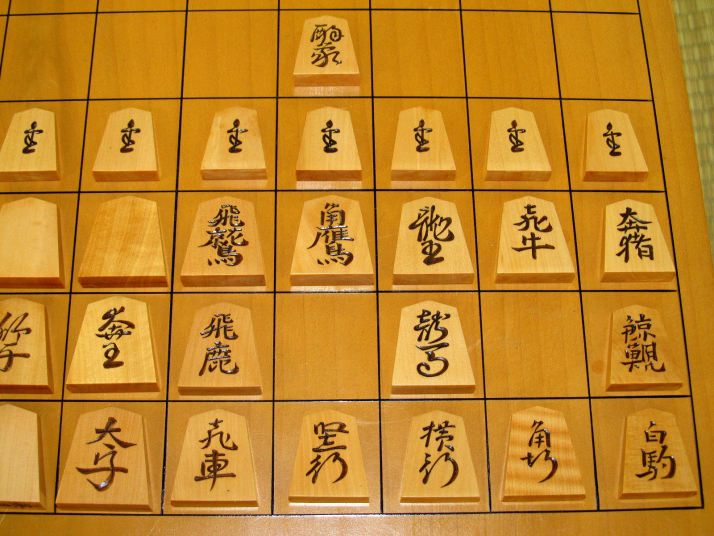 酔象
金 金 金 金 金 金 金
飛鷲 角鷹 龍王 飛牛 奔猪
獅子 奔王 飛鹿 龍馬 鯨鯢
太子 飛車 竪行 横行 角行 白駒